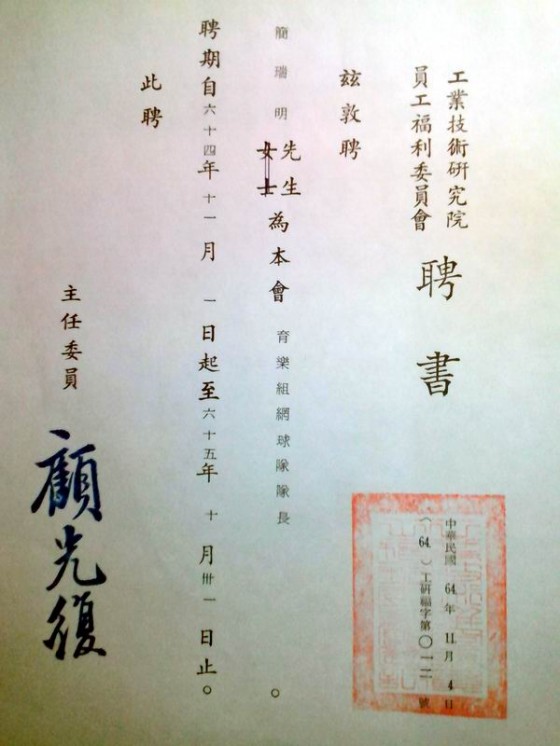 工業技術研究院
員工福利委員會
聘書
中華民國 64 年 11 月 4 日
（ 64 ）工研福字第〇一一號
玆敦聘
簡瑞明 先生 女士 為本會 育樂組網球隊隊長 。
聘期自六十四年十一月 一日起至六十五年 十月卅一日止。
此聘
主任委員
顧光復